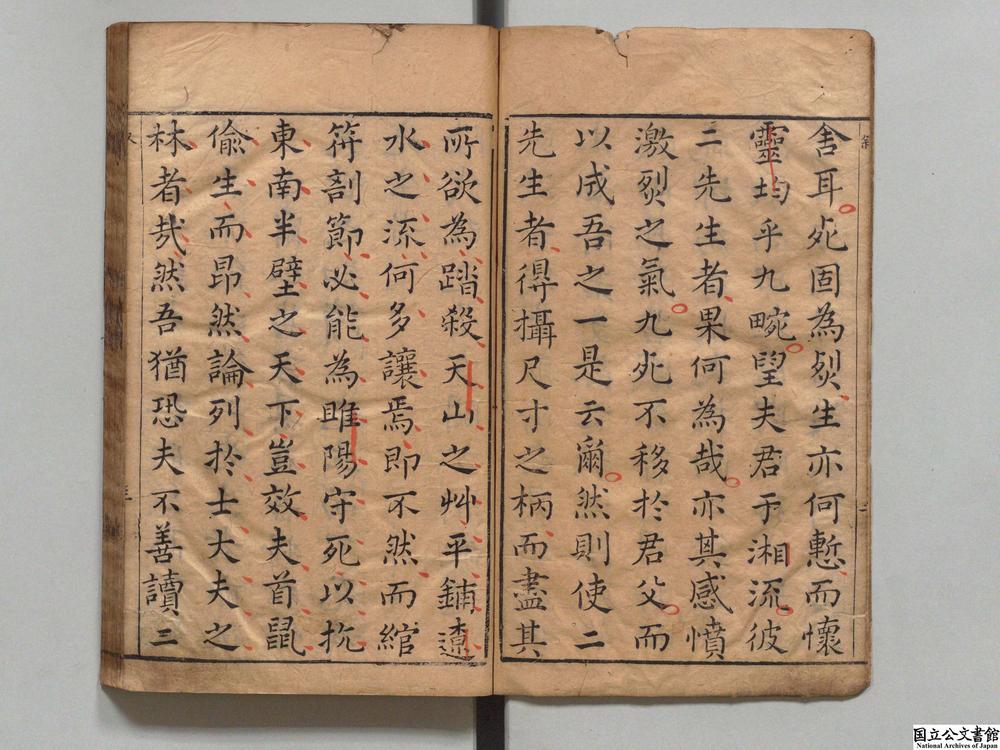 舎耳死固為烈生亦何慙而懷
靈均乎九畹望夫君于湘流彼
二先生者果何為哉亦其感憤
激烈之氣九死不移於君父而
以成吾之一是云爾然則使二
先生者得攝尺寸之柄而盡其
所欲為踏殺天山之艸平鋪遼
水之流何多讓焉即不然而綰
符剖節必能為睢陽守死以抗
東南半壁之天下豈效夫首鼠
偷生而昂然論列於士大夫之
林者哉然吾猶恐夫不善讀二
国立公文書館
National Archives of Japan